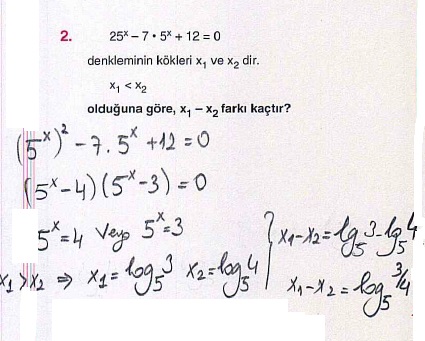 2. 25ˣ – 7 • 5ˣ + 12 = 0
denkleminin kökleri x₁ ve x₂ dir.
x₁ < x₂
olduğuna göre, x₁ – x₂ farkı kaçtır?
(5ˣ)² - 7 . 5ˣ + 12 = 0
(5ˣ-4) (5ˣ-3) = 0
5ˣ=4 Veya 5ˣ=3
x₁ > x₂ ⇒ x₁ = log₅3 x₂ = log₅4
x₁-x₂ = lg₅3 - lg₅4
x₁-x₂ = log₅3/4